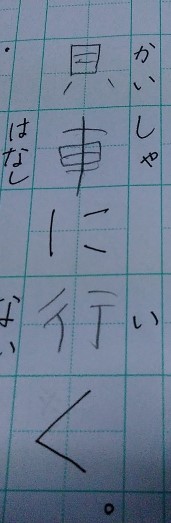 かいしゃ い
貝車に行く。
はなし ない